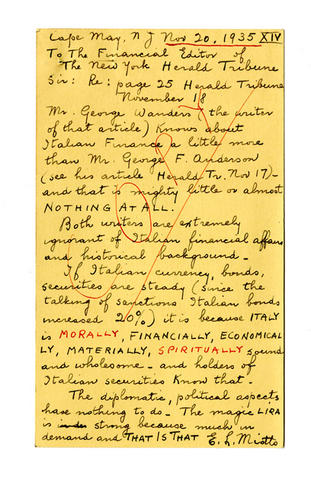 Cape May, N J Nov 20, 1935 XIV
To The Financial Editor of
The New York Herald Tribune
Sir: Re: page 25 Herald Tribune
November 18
Mr. George Wanders (the writer
of that article) knows about
Italian Finance a little more
than Mr. George F. Anderson
(see his article Herald Tr. Nov 17)-
and that is mighty little or almost
NOTHING AT ALL.
Both writers are extremely
ignorant of Italian financial affairs
and historical background-
If Italian currency, bonds,
securities are steady (since the
talking of sanctions Italian bonds
increased 20%) it is because ITALY
is MORALLY, FINANCIALLY, ECONOMICAL
LY, MATERIALLY, SPIRITUALLY sound
and wholesome- and holders of
Italian securities know that-
The diplomatic, political aspects
have nothing to do- The magic LIRA
is strong because much in
demand and THAT IS THAT E. L. Miotto